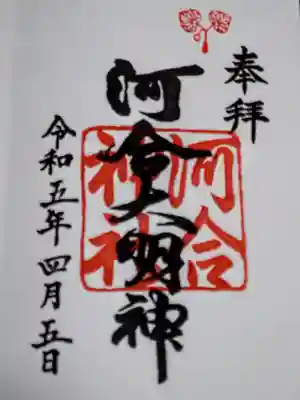 奉拝
河會大明神
河合
神社
令和五年四月五日